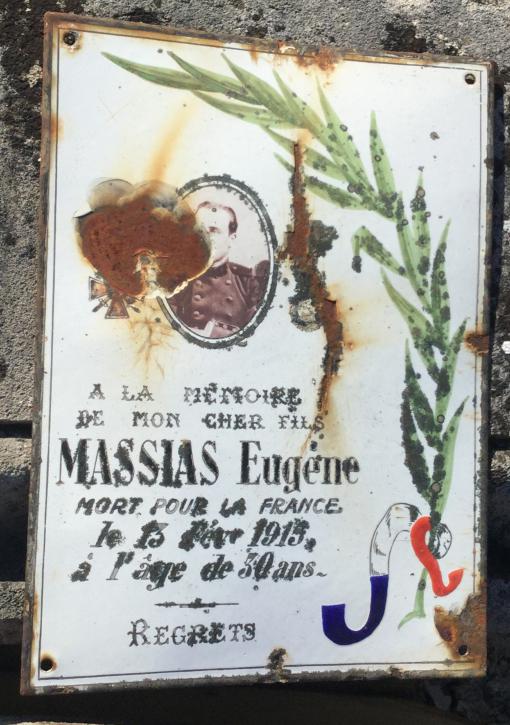 A LA MÉMOIRE
DE MON CHER FILS
MASSIAS Eugène
MORT POUR LA FRANCE
le 13 Févr 1915,
à l'âge de 30 ans~
REGRETS